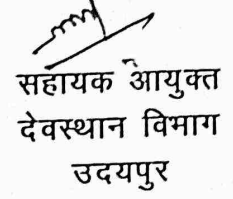 सहायक आयुक्त
देवस्थान विभाग
उदयपुर